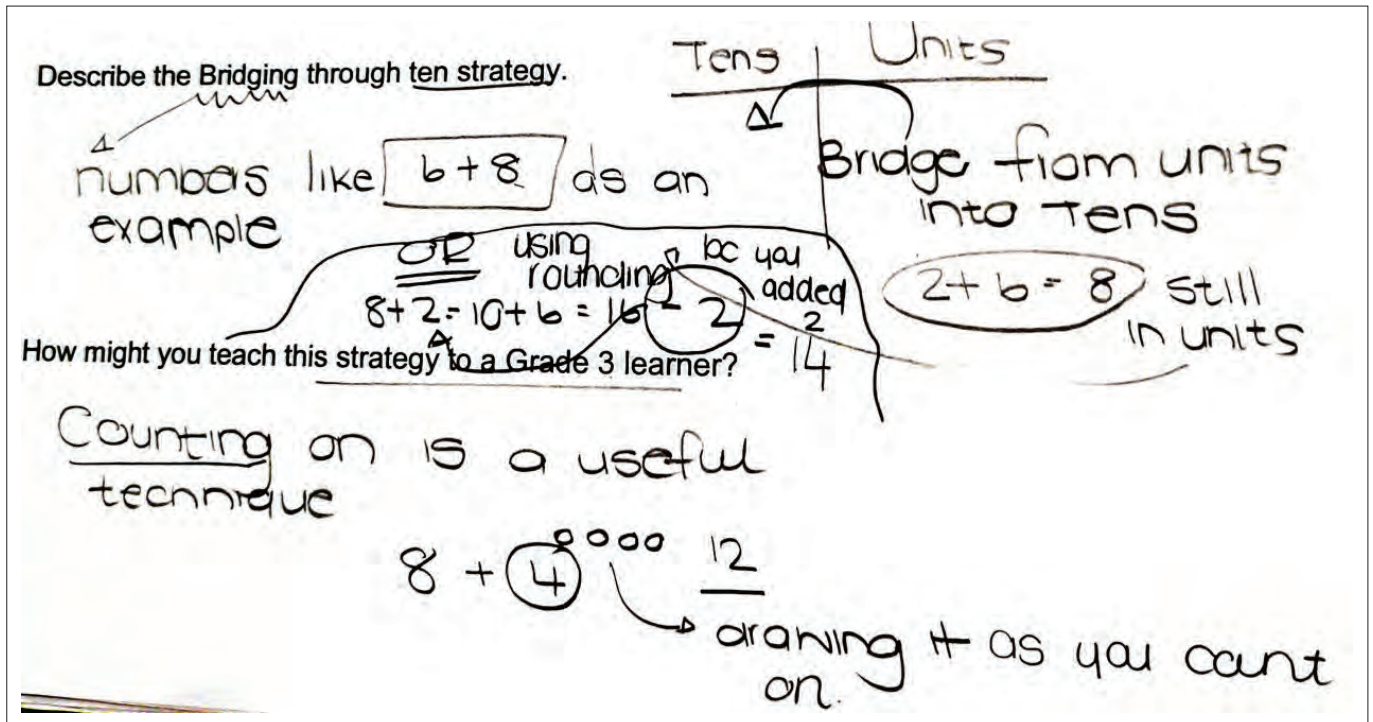 Describe the Bridging through ten strategy.
numbers like 6 + 8 as an
example
Tens Units
Bridge from units
into Tens
2 + 6 = 8 still
in units
OR using
rounding
bc you
added
2
8 + 2 = 10 + 6 = 16 - 2
= 14
How might you teach this strategy to a Grade 3 learner?
Counting on is a useful
technique
8 + 4 12
drawing it as you count
on.